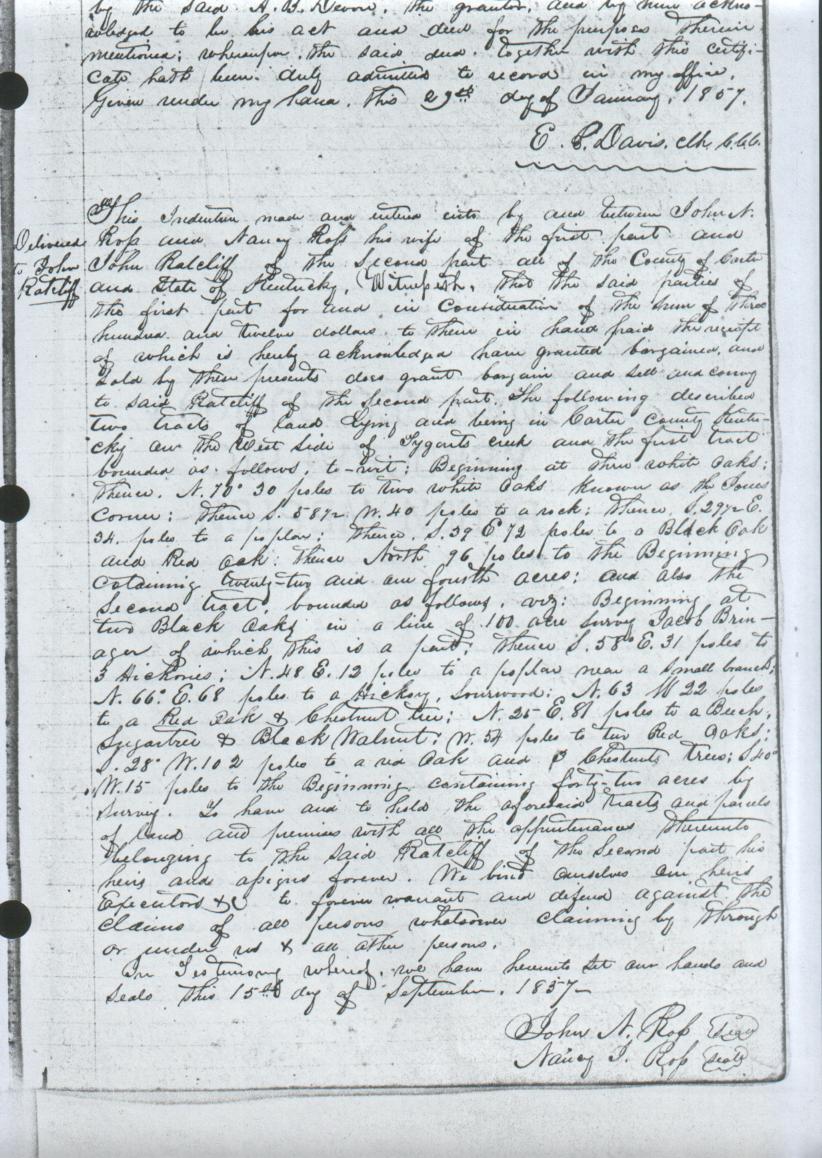 by the said A. B. Devore, the grantor, and by him ackno-
wledged to be his act and deed for the purposes therein
mentioned; whereupon the said deed together with this certifi-
cate hath been duly admitted to record in my office.
Given under my hand this 29th day of January, 1857.
E. P. Davis, clk. C.C.C.
Delivered
to John
Ratcliff
This Indenture made and entered into by and between John N.
Ross and Nancy Ross his wife of the first part and
John Ratcliff of the Second part all of the County of Carter
and State of Kentucky, Witnesseth, that the said parties of
the first part for and in Consideration of the sum of three
hundred and twelve dollars to them in hand paid the receipt
of which is hereby acknowledged have granted bargained, and
Sold by these presents does grant bargain and sell and convey
to said Ratcliff of the second part. The following described
two tracts of land Lying and being in Carter County Kentu-
cky on the West side of Tygarts creek and the first tract
bounded as follows, to-wit: Beginning at three white Oaks;
thence, N. 70° 30 poles to two white Oaks known as the
Corner; thence S. 58½ W. 40 poles to a rock; thence, S. 29½ E.
34. poles to a poplar; thence, S. 39 E 72 poles to a Black Oak
and Red Oak; thence North 96 poles to the Beginning
Cotaining twenty-two and one fourth acres; and also the
Second tract, bounded as follows, viz: Beginning at
two Black Oaks in a line of 100 acre survey Jacob Brin-
ager of which this is a part; thence S. 58° E. 31 poles to
3 Hickories; N. 48 E. 12 poles to a poplar near a small branch;
N. 66° E. 68 poles to a Hickory, Sourwood; N. 63 W 22 poles
to a Red Oak & Chestnut tree; N. 25 E. 81 poles to a Beech,
Sugartree & Black Walnut; W. 54 poles to two Red Oaks;
S. 28° W. 102 poles to a red Oak and 3 Chestnuts trees; S 40°
W. 15 poles to the Beginning containing forty-two acres by
Survey. To have and to hold the aforesaid tracts and parcels
of land and premises with all the appurtenances thereunto
belonging to the said Ratcliff of the Second part his
heirs and assigns forever. We bind ourselves our heirs
Executors &c to forever warrant and defend against the
Claims of all persons whatsoever claiming by through
or under us & all other persons.
In Testimony whereof, we have hereunto set our hands and
Seals this 15th day of September, 1857
John N. Ross Seal
Nancy J. Ross Seal